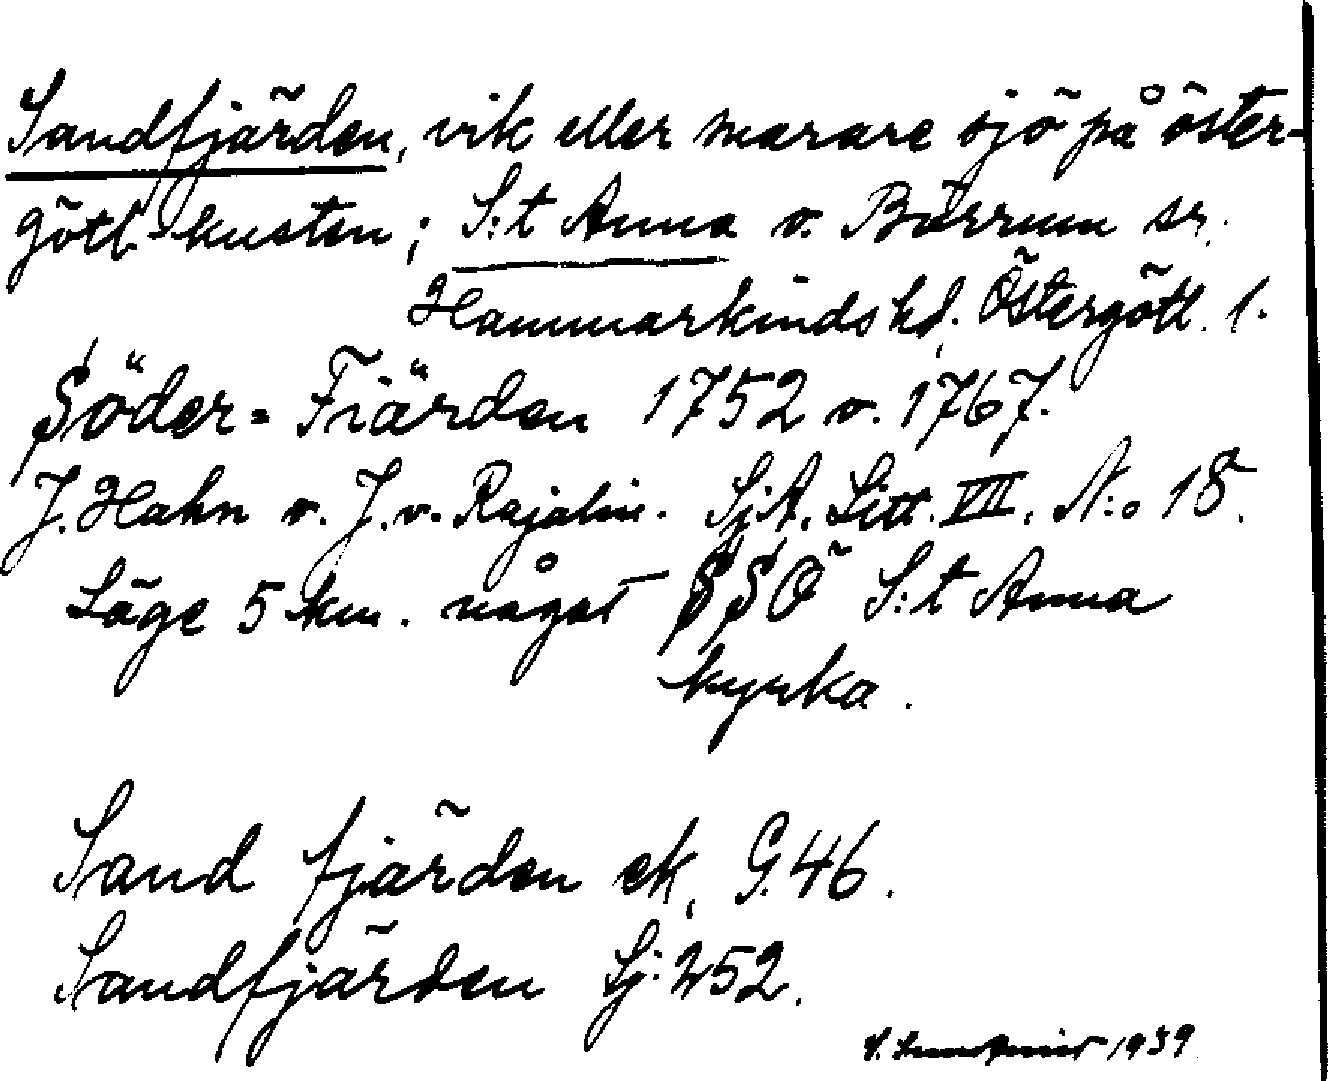 Sandfjärden, vik eller marare sjö på öster-
götl. kusten; S:t Anna o. Börrum sr.
Hammarkinds hd. Östergötl. l.
Söder=Fiärden 1752 o. 1767.
J. Hahn o. J. v. Rajalin. SjA. Litt. VIII. N:o 18.
Läge 5 km. något SSÖ S:t Anna
kyrka.
Sand fjärden ek. G. 46.
Sandfjärden Sj. 252.
1939